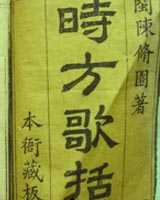 閩陳脩園著
時方歌括
本衙藏板